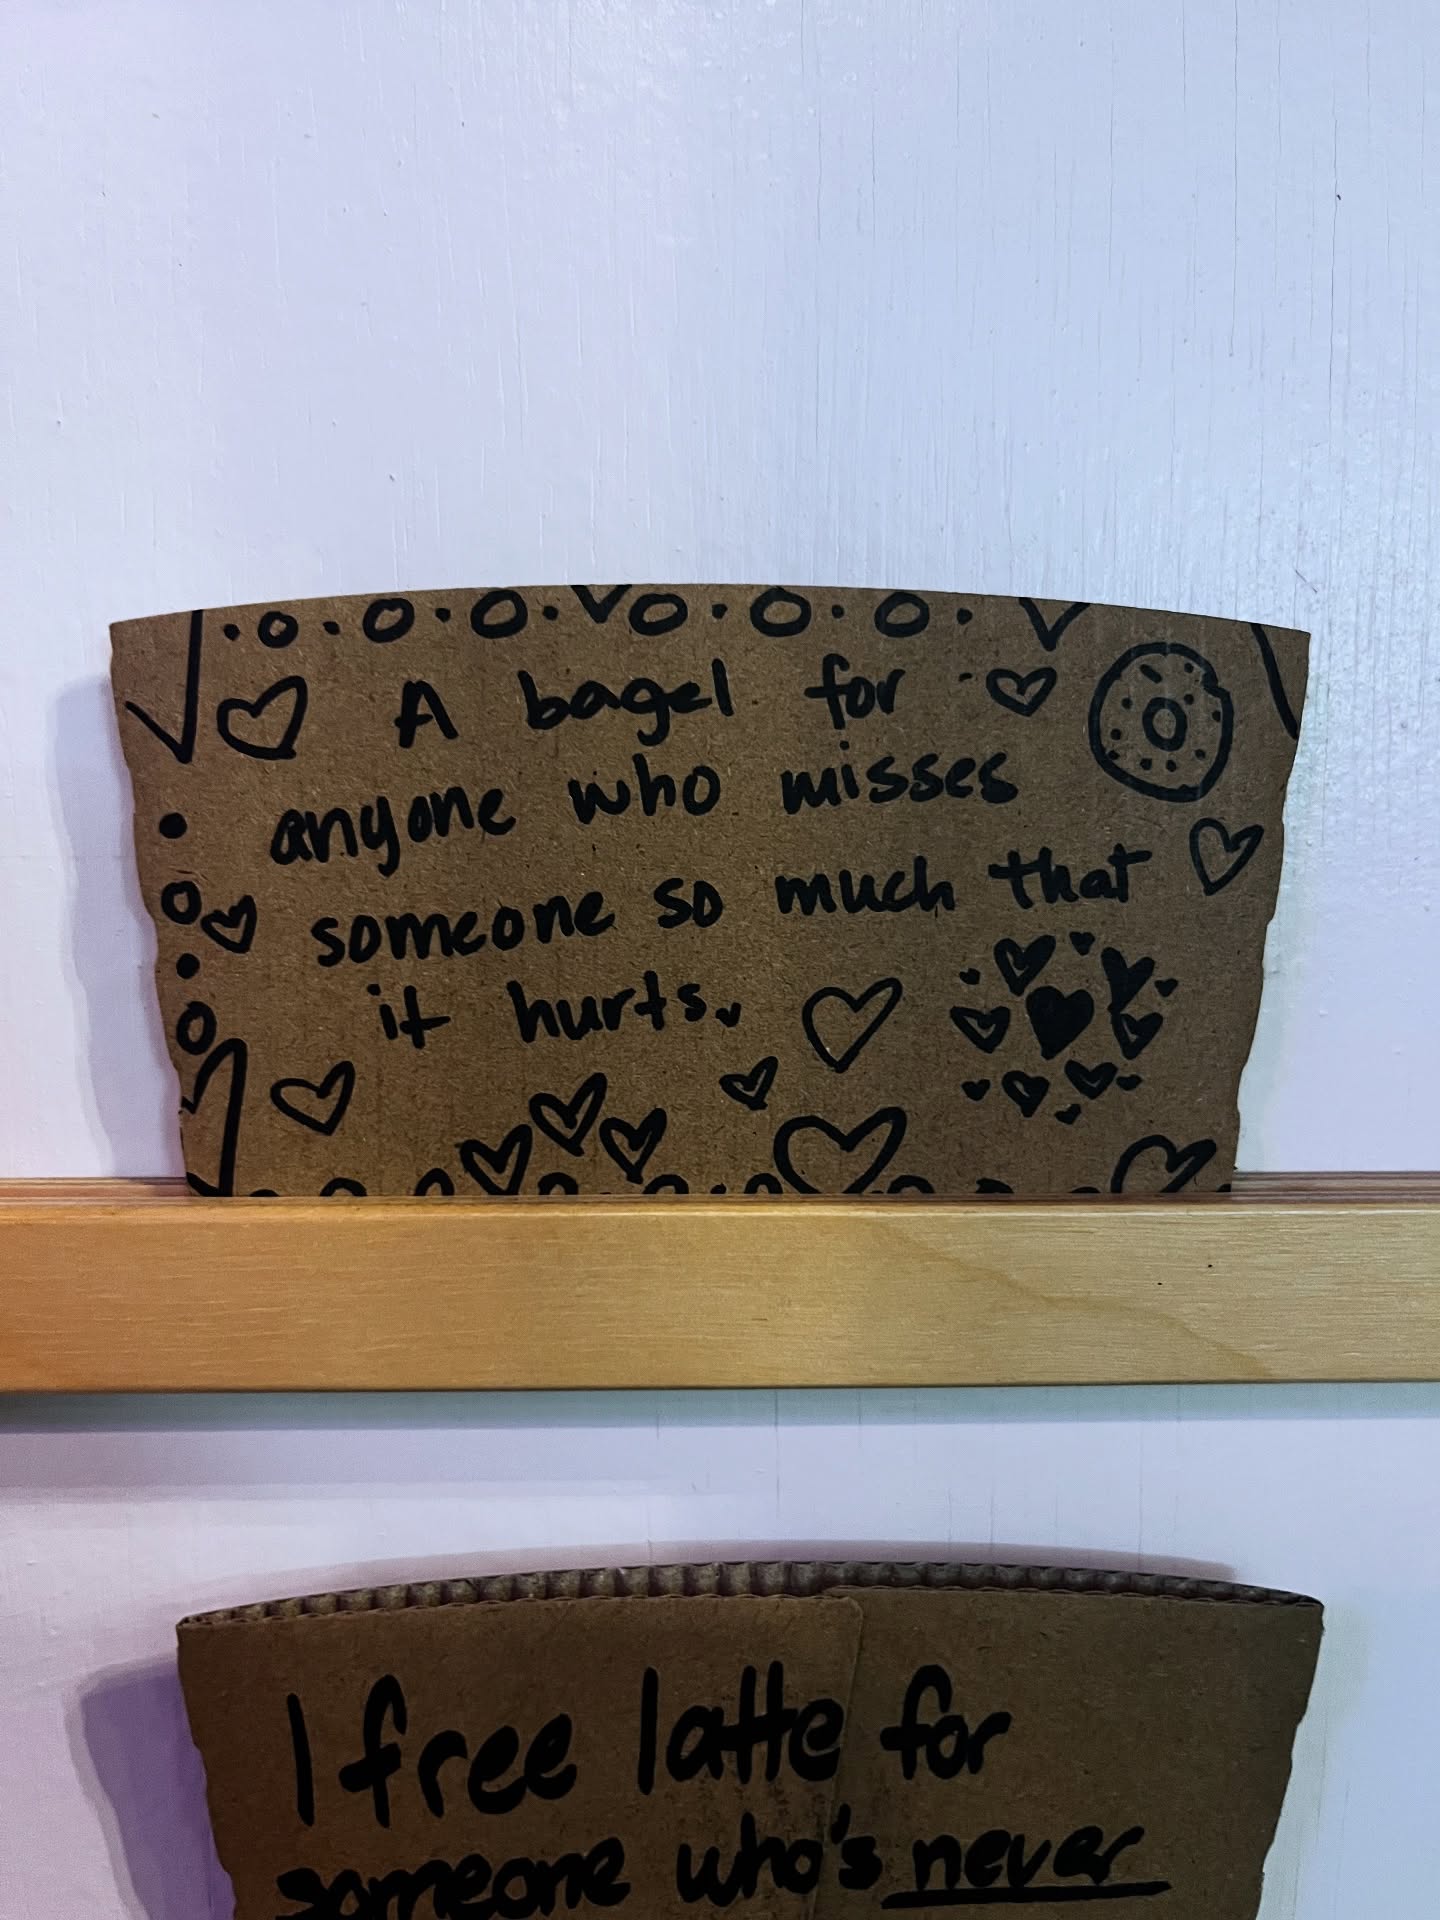 A bagel for
anyone who misses
someone so much that
it hurts.
1 free latte for
someone who's never